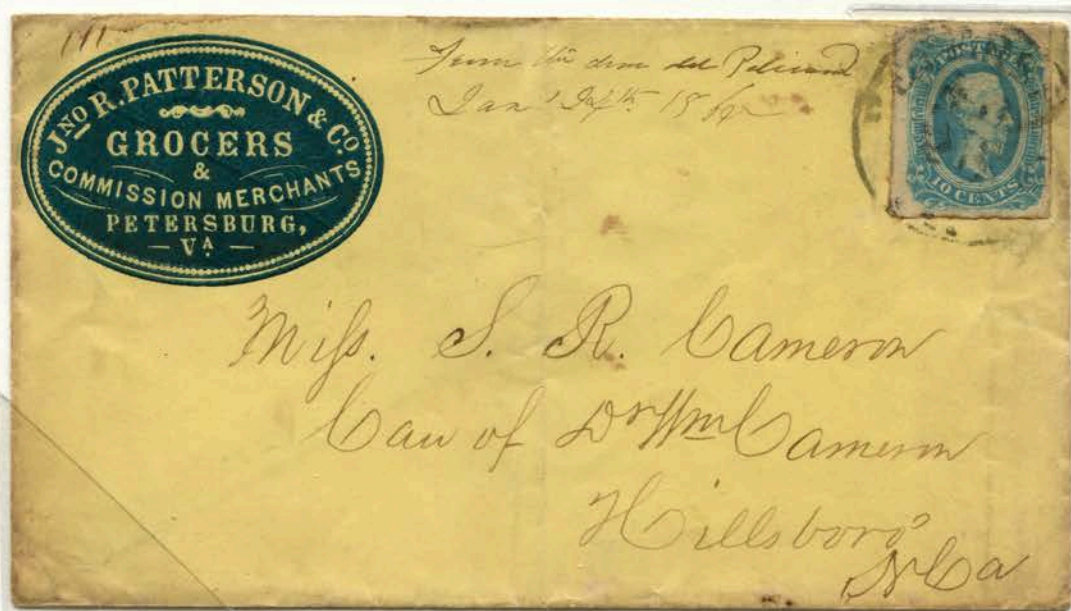 JNO R. PATTERSON & CO
GROCERS
&
COMMISSION MERCHANTS
PETERSBURG,
— VA —
Jan'
10 CENTS
Miſs. S. R. Cameron
Care of Dr Wm Cameron
Hillsboro
N Ca